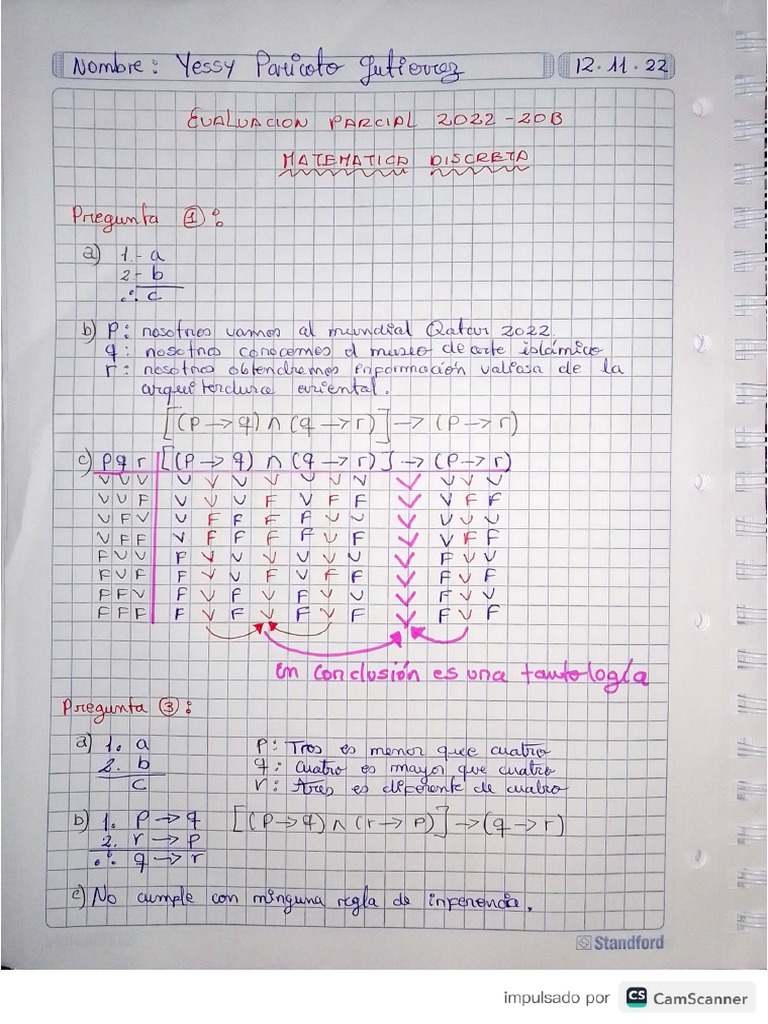 Nombre: Yessy Paricoto Gutierrez 12.11.22
EVALUACION PARCIAL 2022-20B
MATEMATICA DISCRETA
Pregunta ①:
a) 1.- a
2.- b
∴ c
b) p: nosotros vamos al mundial Qatar 2022.
q: nosotros conocemos el museo de arte islámico
r: nosotros obtendremos información valiosa de la
arquiterdura oriental.
[(p→q) ∧ (q→r)] → (p→r)
c) p q r [(p→q) ∧ (q→r)] → (p→r)
V V V V V V V V V V V V V V
V V F V V V F V F F V V F F
V F V V F F F F V V V V V V
V F F V F F F F V F V V F F
F V V F V V V V V V V F V V
F V F F V V F V F F V F V F
F F V F V F V F V V V F V V
F F F F V F V F V F V F V F
En conclusión es una tautología
Pregunta ③:
a) 1. a p: Tres es menor que cuatro
2. b q: cuatro es mayor que cuatro
c r: tres es diferente de cuatro
b) 1. p→q [(p→q) ∧ (r→p)] → (q→r)
2. r→p
∴ q→r
c) No cumple con ninguna regla de inferencia.
Standford
impulsado por CS CamScanner